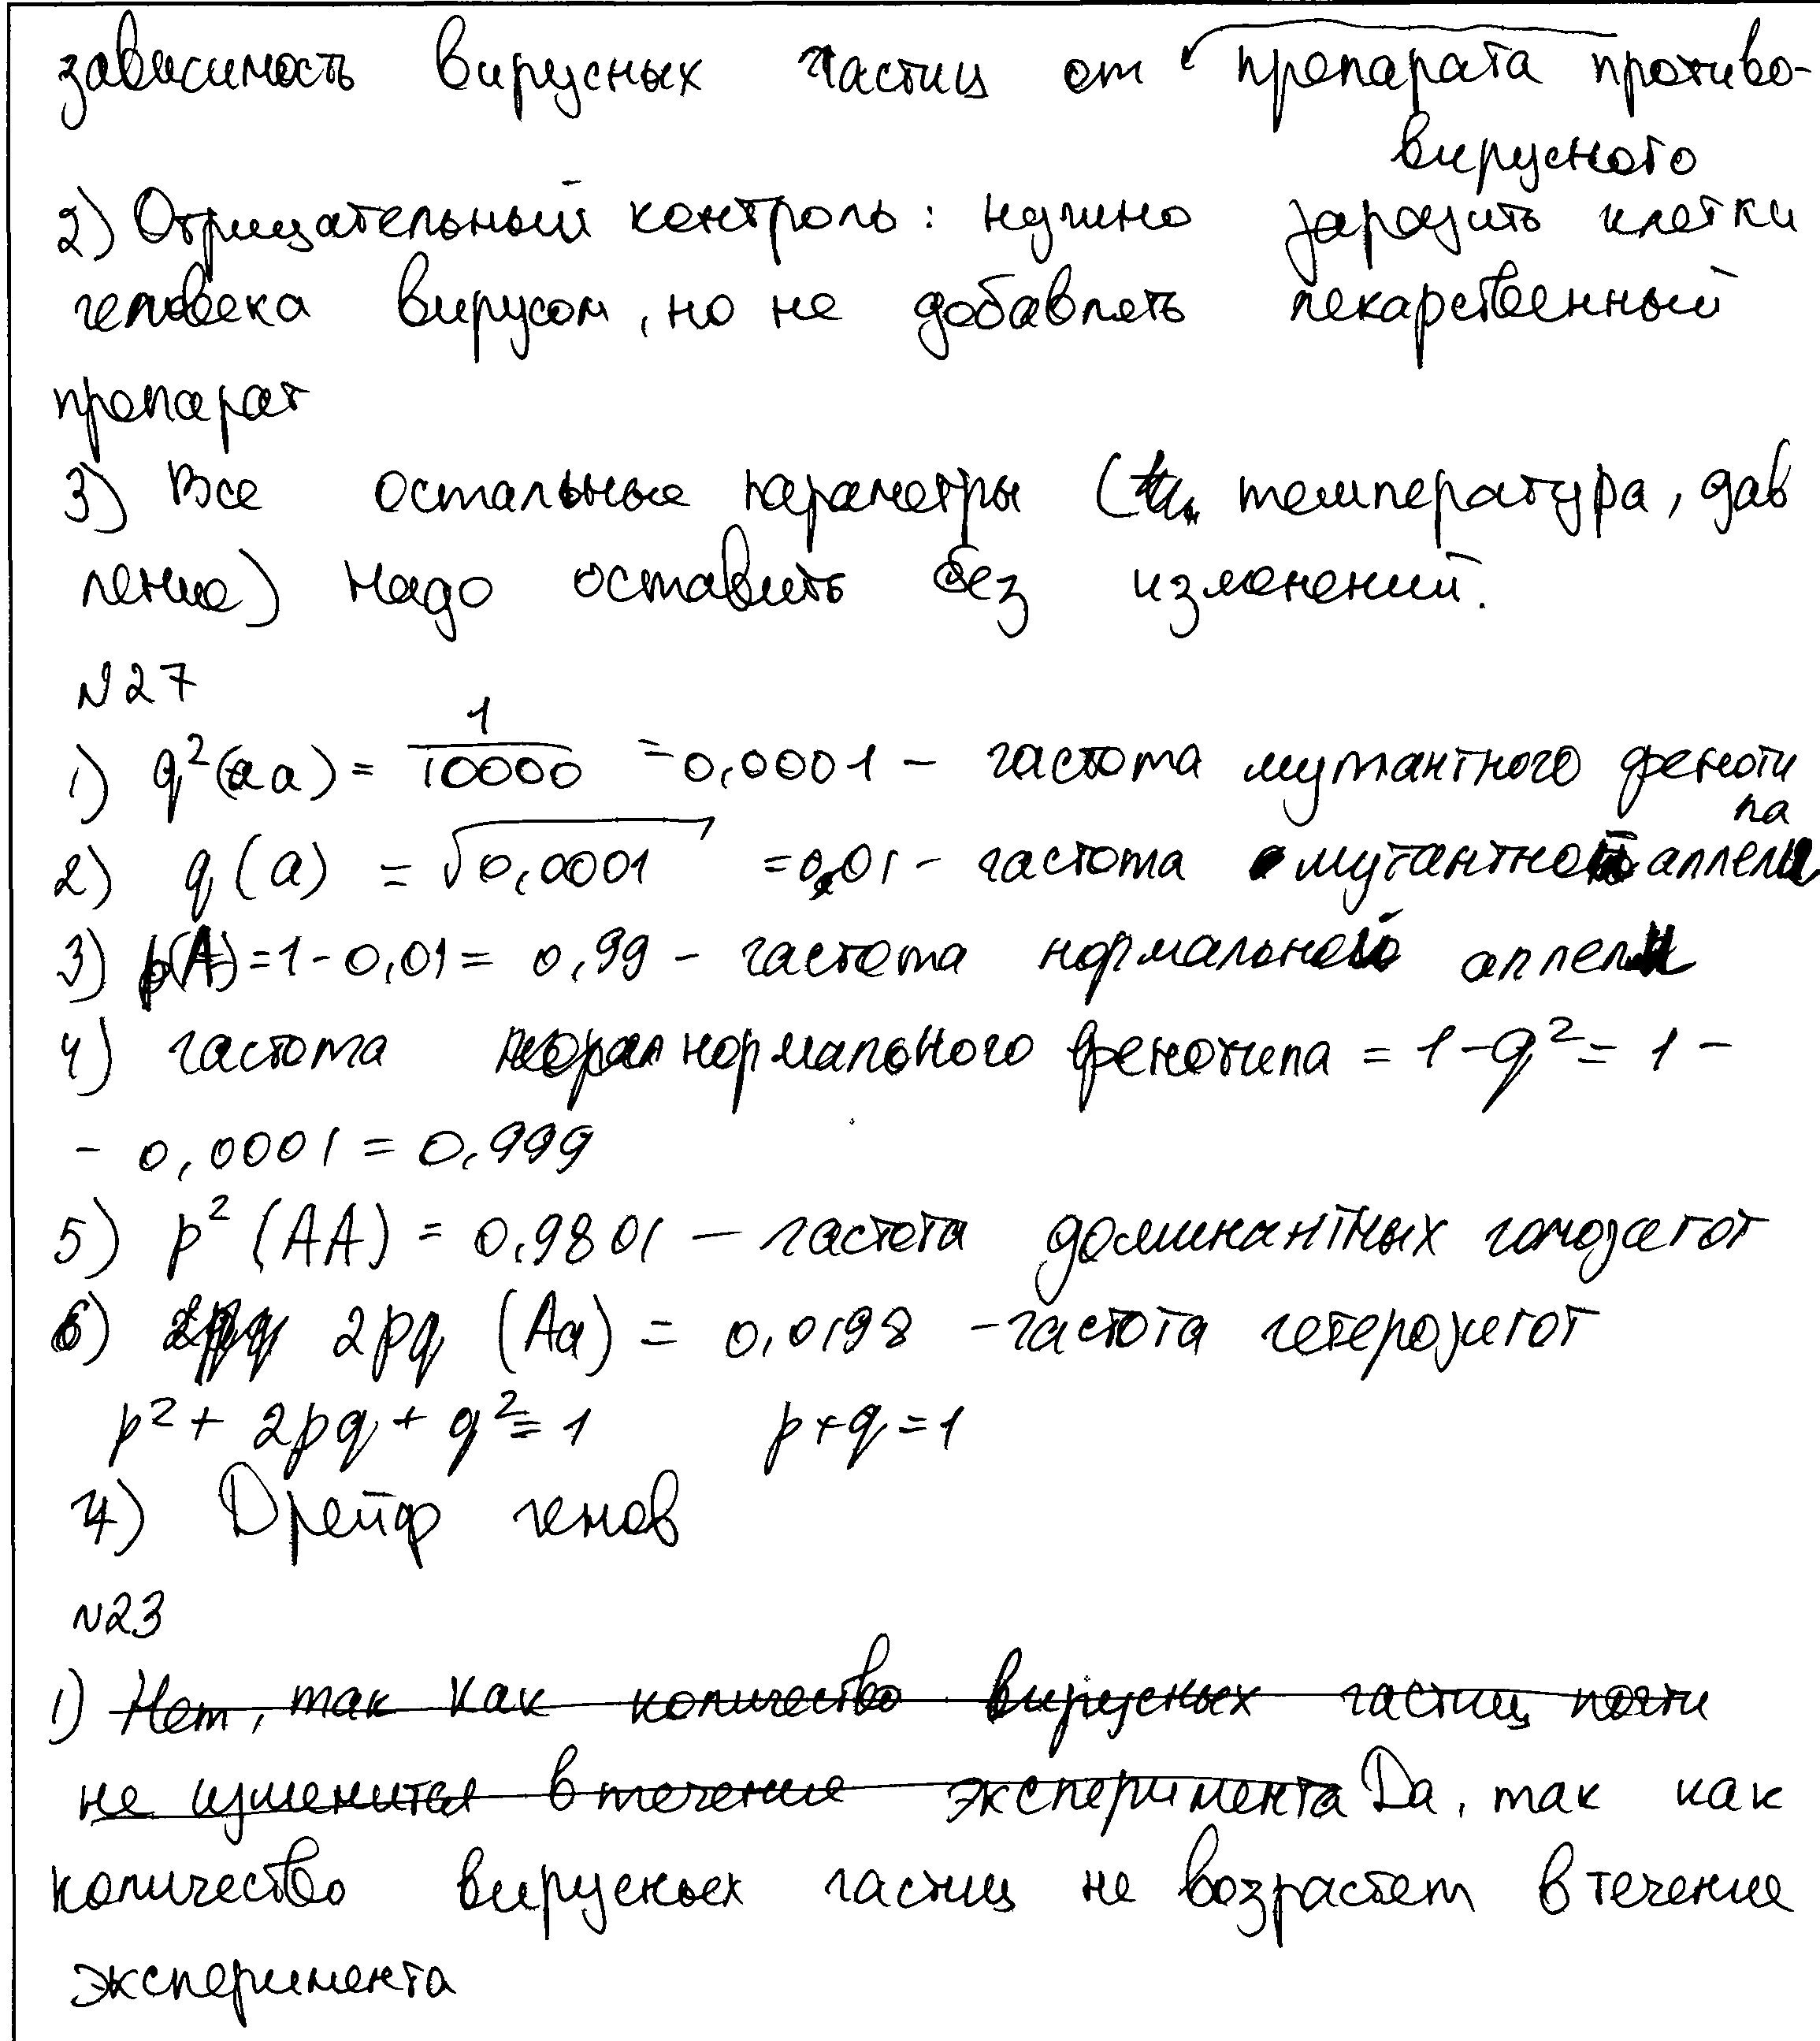 зависимость вирусных частиц от препарата противо-
вирусного
2) Отрицательный контроль: нужно заразить клетки
человека вирусом, но не добавлять лекарственный
препарат
3) Все остальные параметры ( температура, дав
ление) надо оставить без изменений.
№27
1) q²(aa) = 1/10000 = 0,0001 - частота мутантного феноти
па
2) q(a) = √0,0001 = 0,01 - частота мутантной аллели
3) p(A) = 1 - 0,01 = 0,99 - частота нормальной аллели
4) частота нормального фенотипа = 1 - q² = 1 -
- 0,0001 = 0,999
5) p² (AA) = 0,9801 - частота доминантных гомозигот
6) 2pq (Aa) = 0,0198 - частота гетерозигот
p² + 2pq + q² = 1 p+q=1
7) Дрейф генов
№23
1) Нет, так как количество вирусных частиц почти
не изменится в течение эксперимента Да, так как
количество вирусных частиц не возрастет в течение
эксперимента